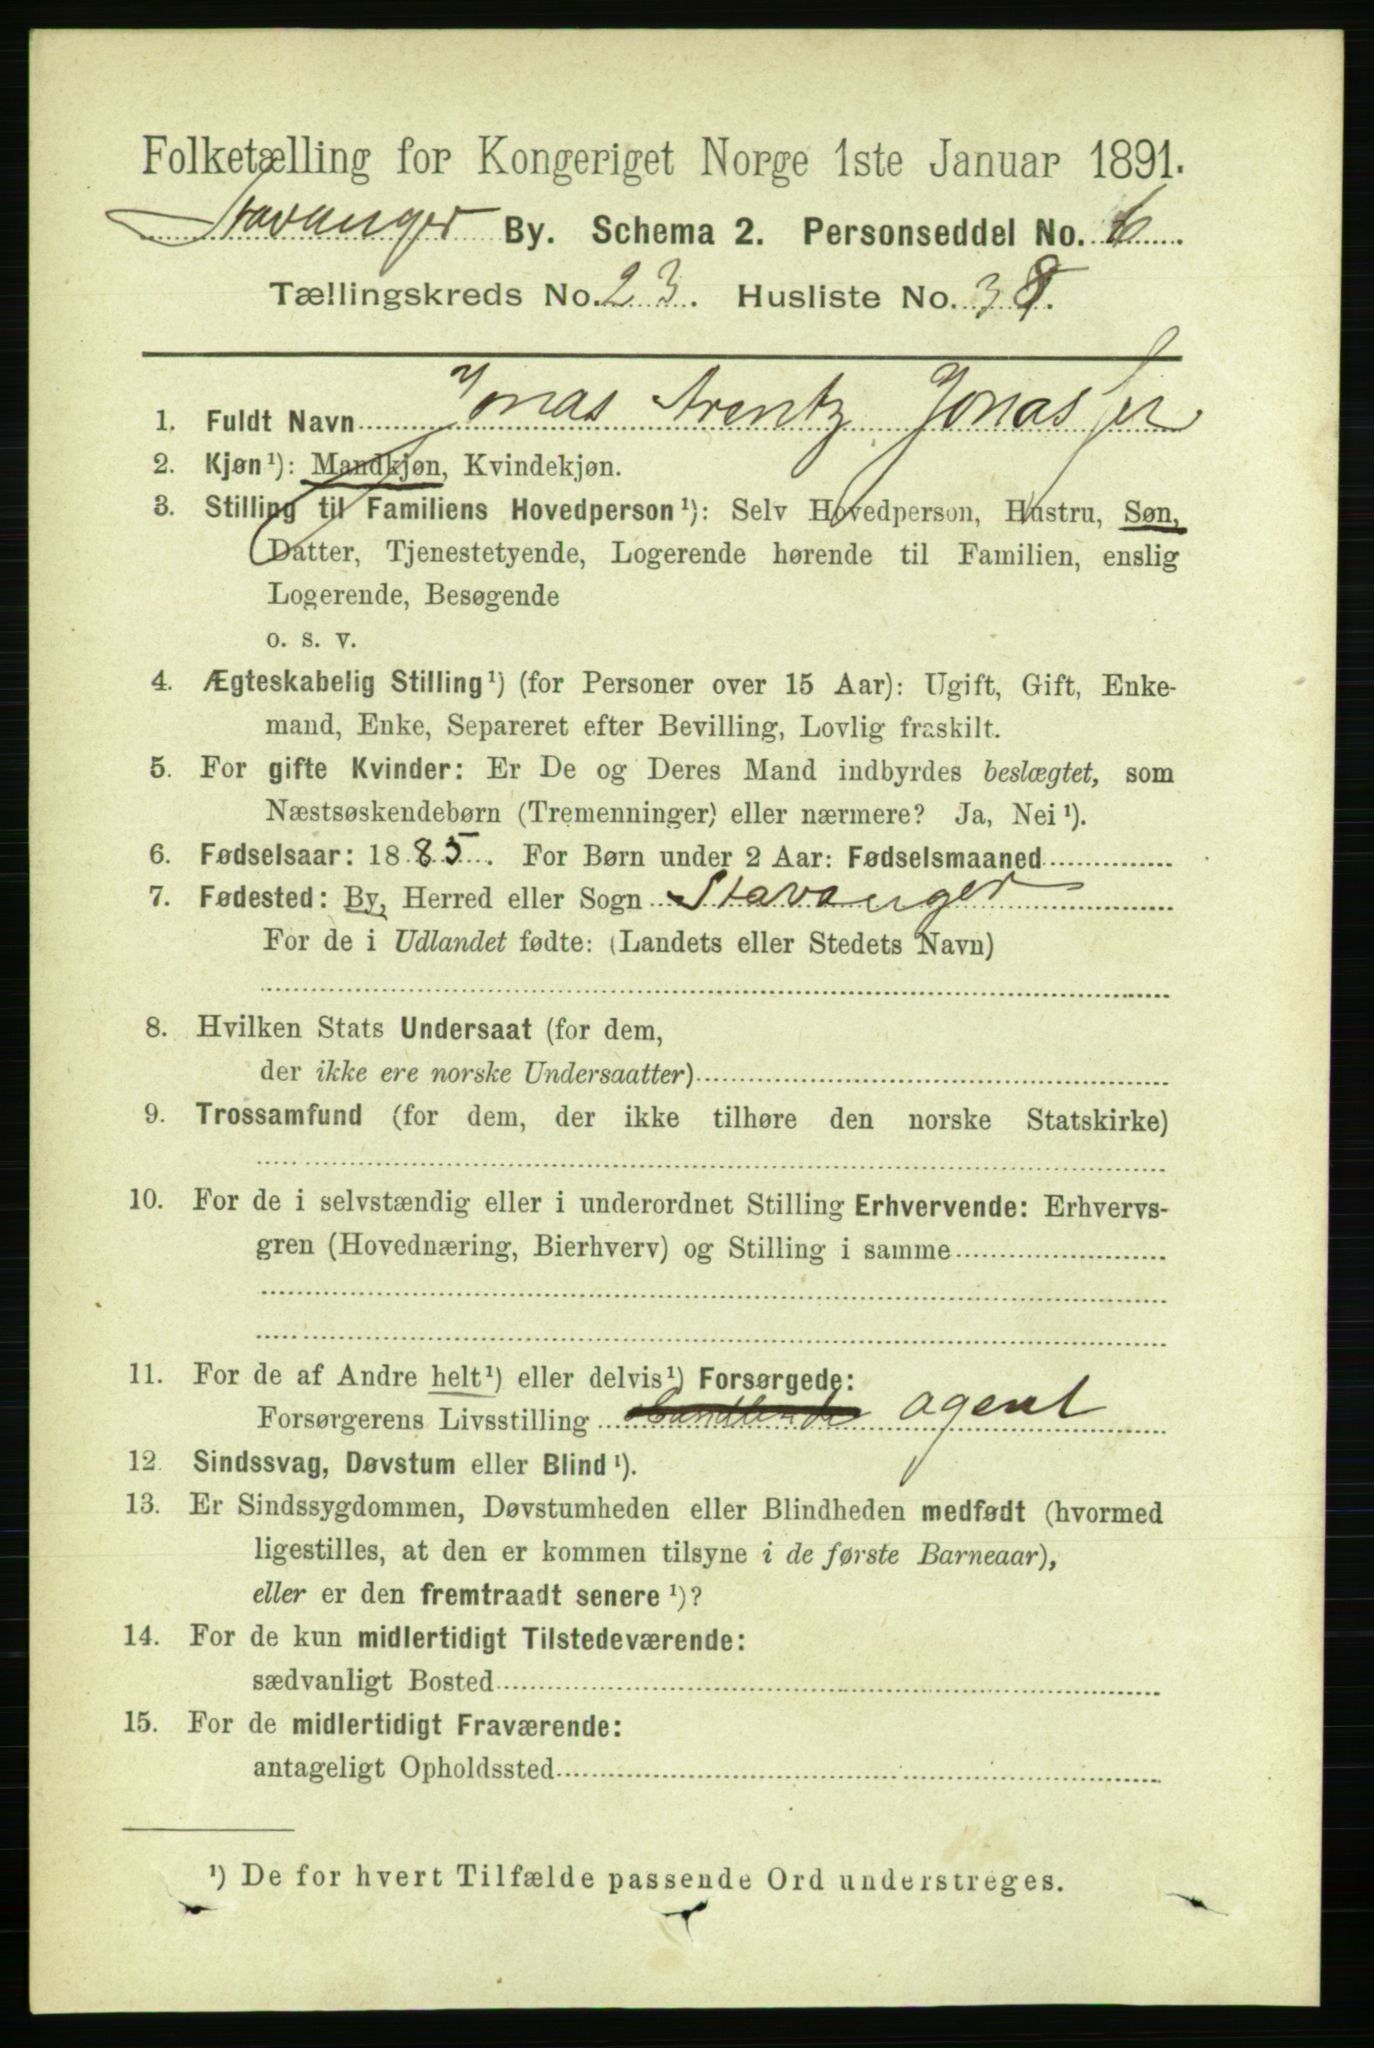 Folketælling for Kongeriget Norge 1ste Januar 1891.
Stavanger By. Schema 2. Personseddel No. 6
Tællingskreds No. 23. Husliste No. 38.
1. Fuldt Navn Jonas Arentz Jonassen
2. Kjøn¹): Mandkjøn, Kvindekjøn.
3. Stilling til Familiens Hovedperson¹): Selv Hovedperson, Hustru, Søn,
Datter, Tjenestetyende, Logerende hørende til Familien, enslig
Logerende, Besøgende
o. s. v.
4. Ægteskabelig Stilling¹) (for Personer over 15 Aar): Ugift, Gift, Enke-
mand, Enke, Separeret efter Bevilling, Lovlig fraskilt.
5. For gifte Kvinder: Er De og Deres Mand indbyrdes beslægtet, som
Næstsøskendebørn (Tremenninger) eller nærmere? Ja, Nei¹).
6. Fødselsaar: 1885. For Børn under 2 Aar: Fødselsmaaned
7. Fødested: By, Herred eller Sogn Stavanger
For de i Udlandet fødte: (Landets eller Stedets Navn)
8. Hvilken Stats Undersaat (for dem,
der ikke ere norske Undersaatter)
9. Trossamfund (for dem, der ikke tilhøre den norske Statskirke)
10. For de i selvstændig eller i underordnet Stilling Erhvervende: Erhvervs-
gren (Hovednæring, Bierhverv) og Stilling i samme
11. For de af Andre helt¹) eller delvis¹) Forsørgede:
Forsørgerens Livsstilling agent
12. Sindssvag, Døvstum eller Blind¹).
13. Er Sindssygdommen, Døvstumheden eller Blindheden medfødt (hvormed
ligestilles, at den er kommen tilsyne i de første Barneaar),
eller er den fremtraadt senere¹)?
14. For de kun midlertidigt Tilstedeværende:
sædvanligt Bosted
15. For de midlertidigt Fraværende:
antageligt Opholdssted
¹) De for hvert Tilfælde passende Ord understreges.